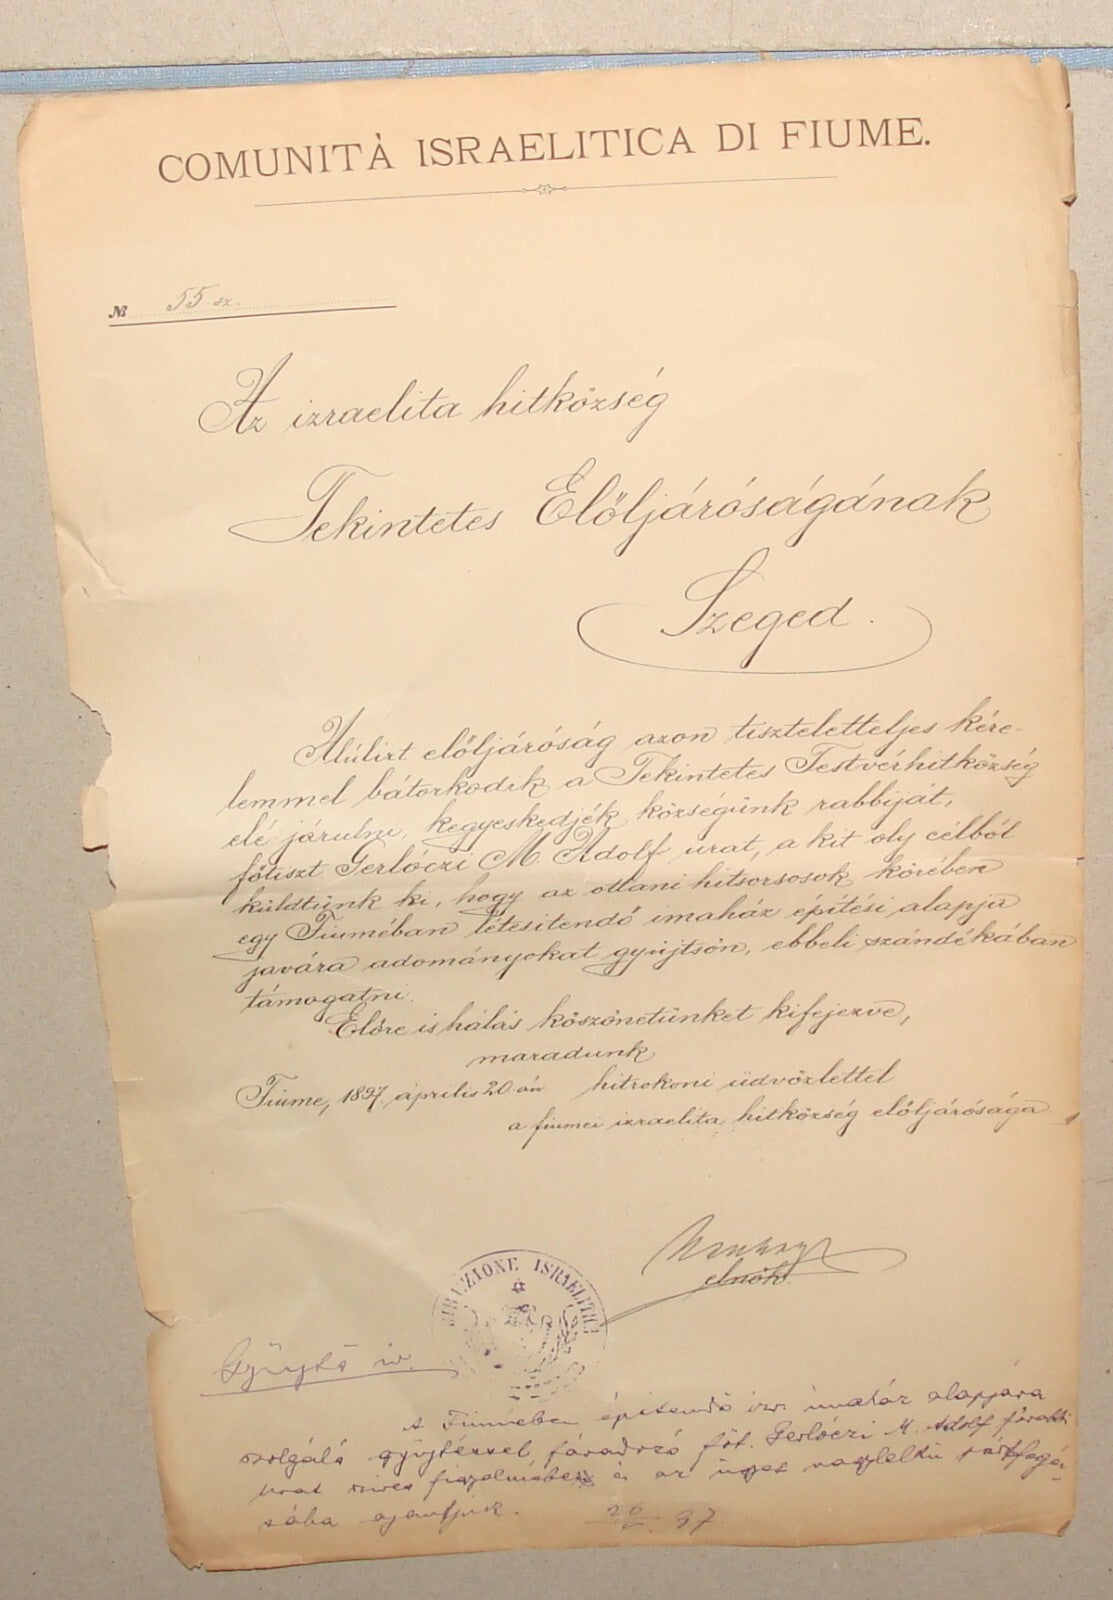 COMUNITÀ ISRAELITICA DI FIUME.
№ 55 sz.
Az izraelita hitközség
Tekintetes Előljáróságának
Szeged.
Alúlirt előljáróság azon tiszteletteljes kére-
lemmel bátorkodik a Tekintetes Testvérhitközség
elé járulni, kegyeskedjék községünk rabbiját,
főtiszt Gerlóczi M. Adolf urat, a kit oly célból
küldtünk ki, hogy az ottani hitsorsosok körében
egy Fiuméban létesitendő imaház épitési alapja
javára adományokat gyüjtsön, ebbeli szándékában
támogatni.
Előre is hálás köszönetünket kifejezve,
maradunk
Fiume, 1897. április 20-án hitrokoni üdvözlettel
a fiumei izraelita hitközség előljárósága
elnök
ISRAELITICA
Gyüjtő iv.
A Fiuméban épitendő izr. imaház alapjára
szolgáló gyüjtéssel fáradozó föt. Gerlóczi M. Adolf főrabbi
urat szives figyelmében és az ügyet nagylelkü pártfogá-
sába ajánljuk.
97